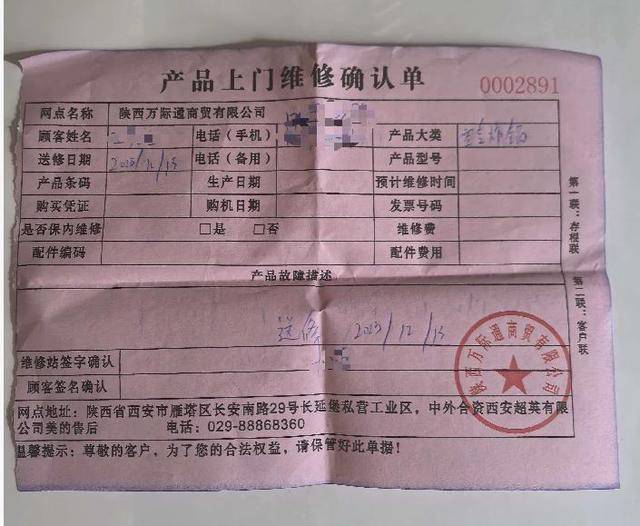 产品上门维修确认单 0002891
网点名称 陕西万际通商贸有限公司
顾客姓名 电话（手机） 产品大类 空气炸锅
送修日期 2023/12/15 电话（备用） 产品型号
产品条码 生产日期 预计维修时间
购买凭证 购机日期 发票号码
是否保内维修 □是 □否 维修费
配件编码 配件费用
产品故障描述
送修 2023/12/15
维修站签字确认
顾客签名确认
网点地址：陕西省西安市雁塔区长安南路29号长延堡私营工业区，中外合资西安超英有限
公司美的售后 电话：029-88868360
温馨提示：尊敬的客户，为了您的合法权益，请保管好此单据！
第一联：存根联 第二联：客户联
陕西万际通商贸有限公司